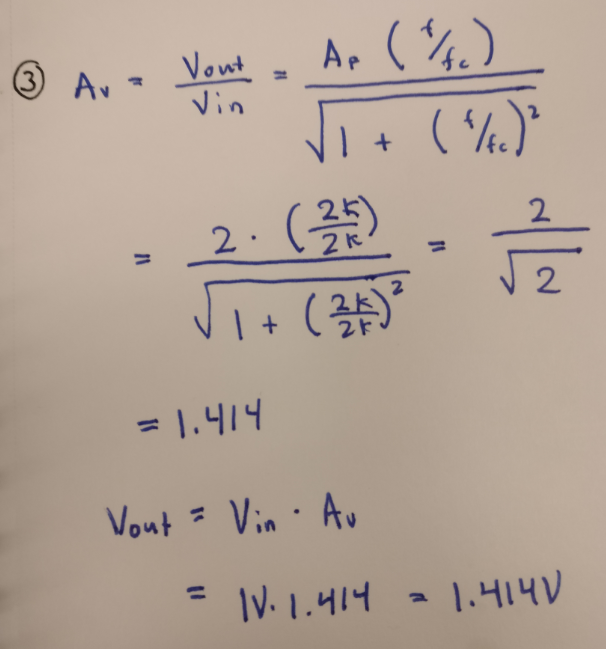 ③ Av = Vout/Vin = AF (f/fc) / √(1 + (f/fc)²)
= 2 · (2k/2k) / √(1 + (2k/2k)²) = 2/√2
= 1.414
Vout = Vin · Av
= 1V · 1.414 = 1.414V